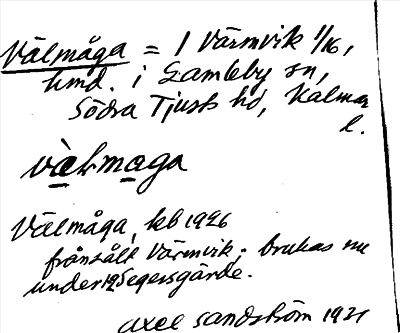 Välmåga = 1 Värmvik 1/16,
hmd. i Gamleby sn,
Södra Tjusts hd, Kalmar
l.
vàlmaga
Välmåga, kb 1926
frånsålt Värmvik; brukas nu
under Segersgärde.
Axel Sandström 1921